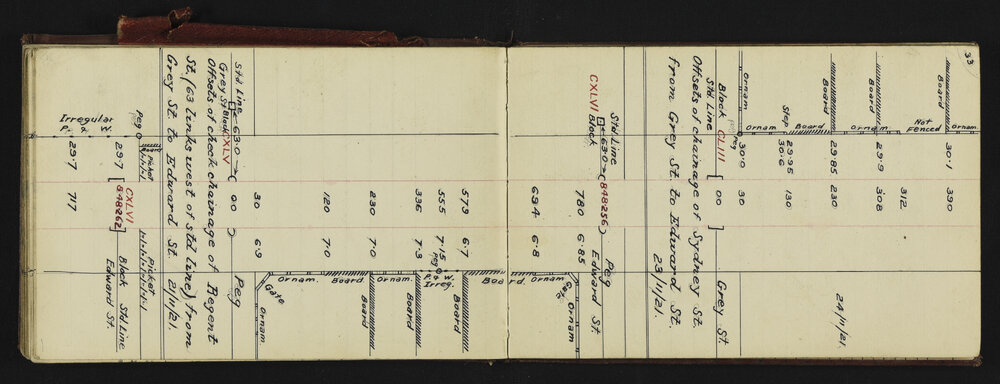 33
24/11/21.
Board 30·1 390
Ornam.
Not Fenced 312
Board 29·9 308
Ornam.
Board 29·85 230
Board
Step 29·95 130
30·6
Ornam. Ornam. 30·0 30
Peg
Block CLIII [00 Grey St.
Std Line
Offsets of chainage of Sydney St.
from Grey St. to Edward St.
23/11/21.
Std Line 63·0 (848256) Peg
CXLVI Block Edward St.
780 6·85 Gate Ornam
694 6·8 Ornam.
Board.
573 6·7 Board
555 7·15 Peg P. & W. Irreg.
336 7·3 Board
Ornam.
230 7·0 Board
Board
120 7·0
30 6·9 Ornam. Gate Ornam
Std Line 63·0 (00) Peg
Grey St Block CXLV
Offsets of check chainage of Regent
St. (63 links west of std line) from
Grey St. to Edward St. 21/11/21.
Peg Picket Board Picket
29·7 [CXLVI 848262] Block Std Line
Edward St.
Irregular P. & W. 29·7 717